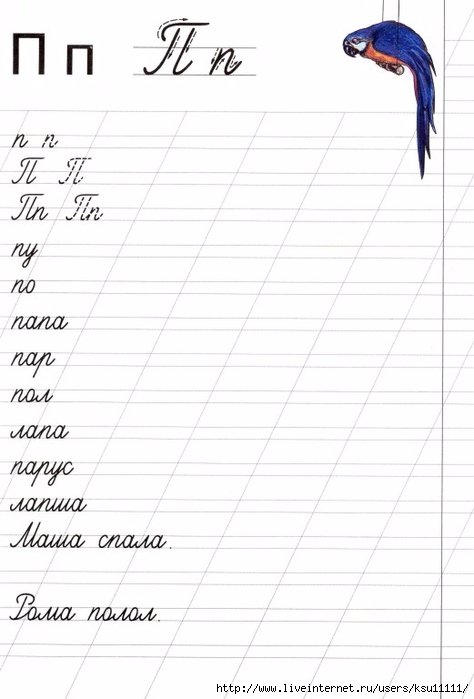 П п П п
п п
П П
Пп Пп
пу
по
папа
пар
пол
лапа
парус
лапша
Маша спала.
Рома полол.
http://www.liveinternet.ru/users/ksu11111/